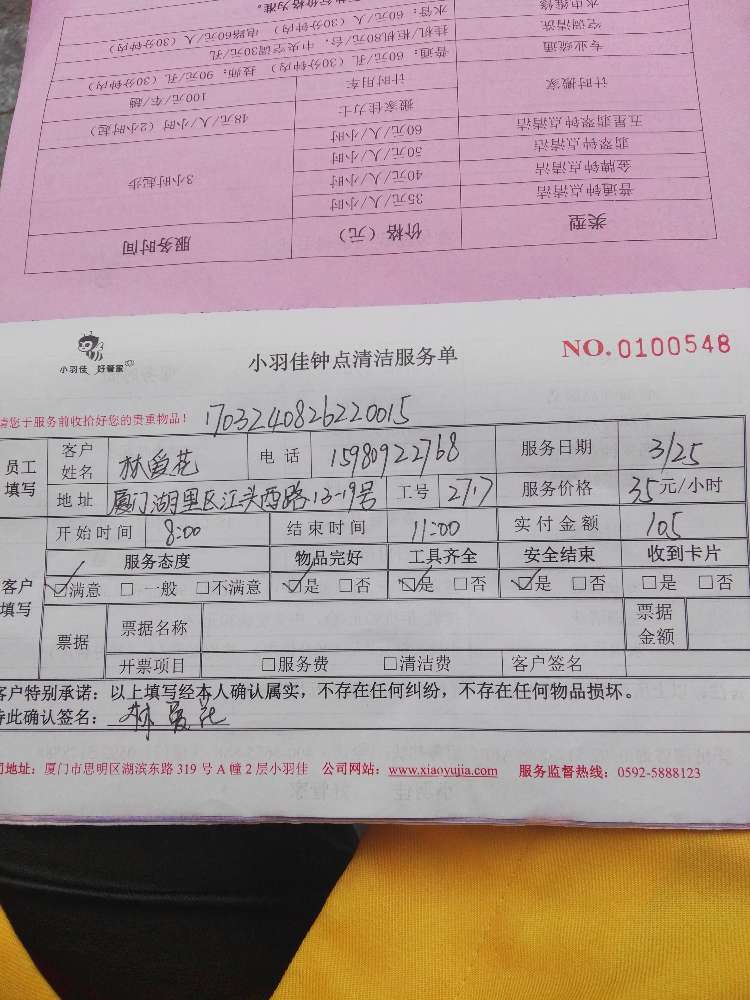 水电维修 水管：60元/人（30分钟内） 电路60元/人（30分钟内）
空调清洗 挂机/柜机80元/台，中央空调30元/孔
专业疏通 普通：60元/孔（30分钟内） 技师：90元/孔（30分钟内）
计时搬家 计时用车 100元/车/趟
搬家佳力士 48元/人/小时（2小时起）
五星翡翠钟点清洁 60元/人/小时
翡翠钟点清洁 50元/人/小时
金牌钟点清洁 40元/人/小时 3小时起步
普通钟点清洁 35元/人/小时
类型 价格（元） 服务时间
小羽佳 好管家
小羽佳钟点清洁服务单
NO. 0100548
请您于服务前收拾好您的贵重物品！ 1703240826220015
员工填写 客户姓名 林爱花 电话 15980922768 服务日期 3/25
地址 厦门湖里区江头西路13-19号 工号 2717 服务价格 35元/小时
开始时间 8:00 结束时间 11:00 实付金额 105
客户填写 服务态度 物品完好 工具齐全 安全结束 收到卡片
☑满意 □一般 □不满意 ☑是 □否 ☑是 □否 ☑是 □否 □是 □否
票据 票据名称 票据金额
开票项目 □服务费 □清洁费 客户签名
客户特别承诺：以上填写经本人确认属实，不存在任何纠纷，不存在任何物品损坏。
特此确认签名：林爱花
司地址：厦门市思明区湖滨东路 319 号 A 幢 2 层小羽佳 公司网站：www.xiaoyujia.com 服务监督热线：0592-5888123